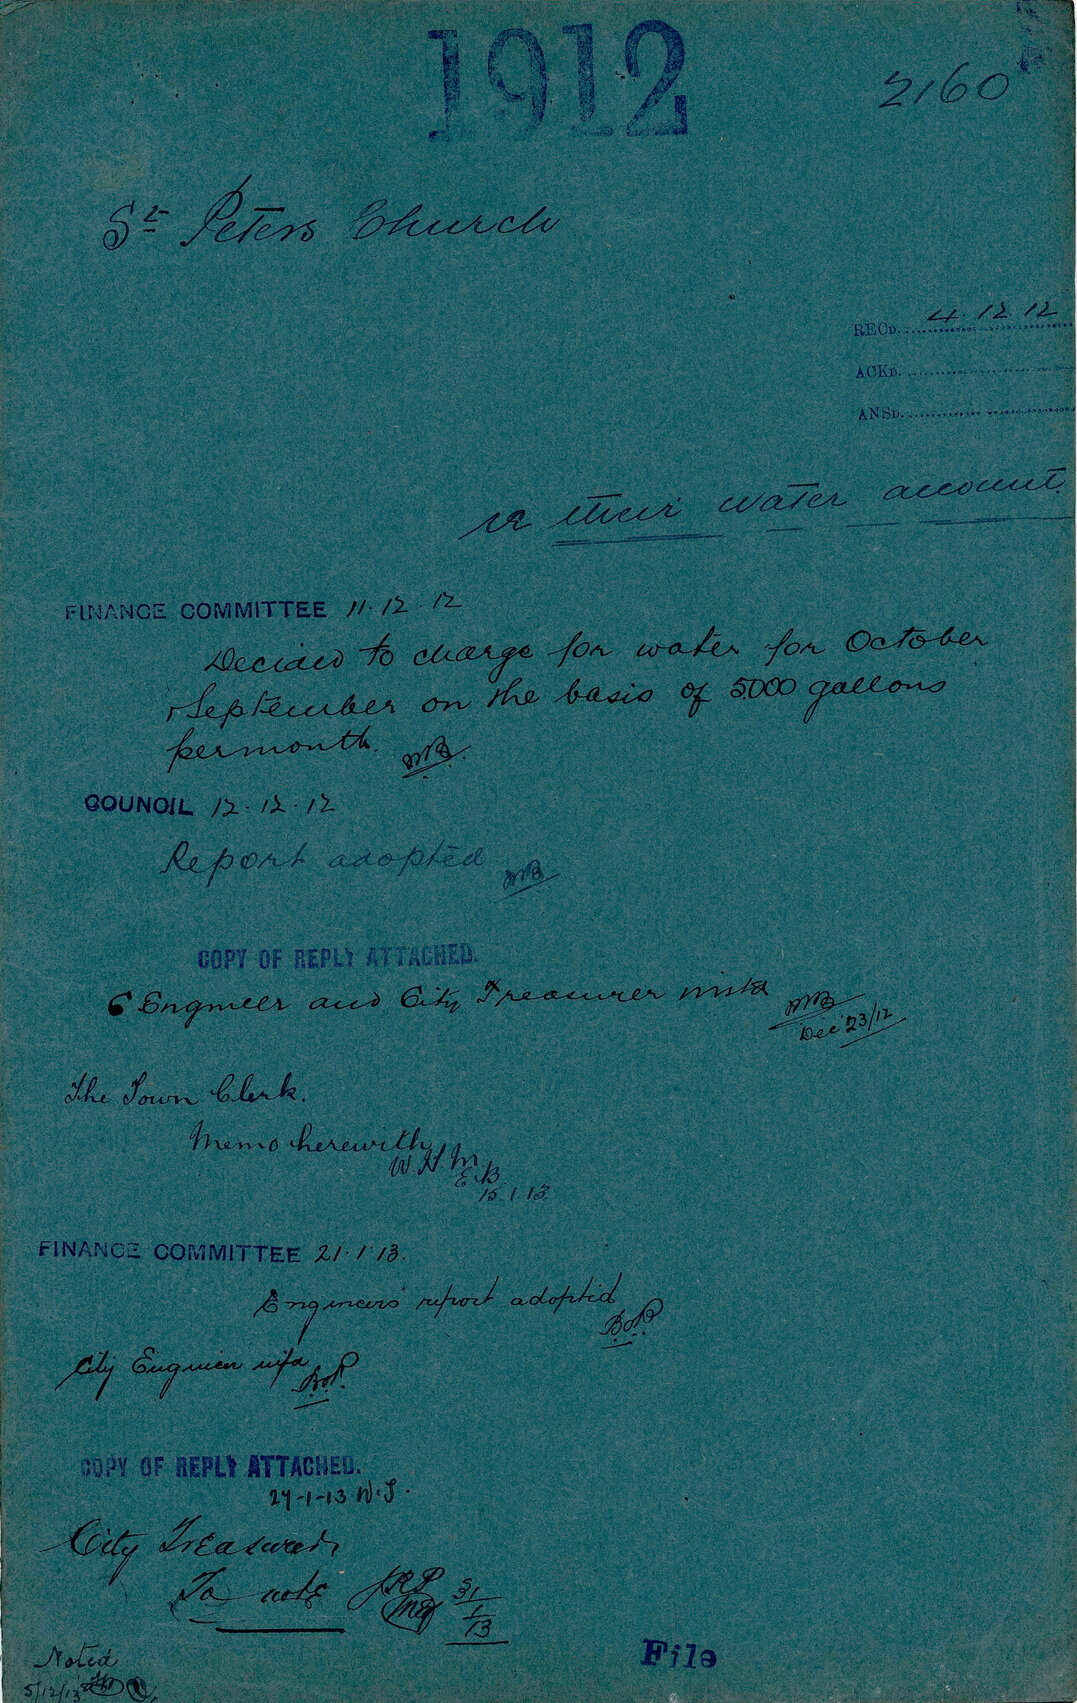 1912
2160
St Peters Church
RECD. 4.12.12
ACKD.
ANSD.
re their water account.
FINANCE COMMITTEE 11.12.12
Decided to charge for water for October
& September on the basis of 5000 gallons
per month.
COUNCIL 12.12.12
Report adopted
COPY OF REPLY ATTACHED.
C Engineer and City Treasurer
Dec 23/12
The Town Clerk.
Memo herewith
W.H.M.
E.B
15.1.13
FINANCE COMMITTEE 21.1.13.
Engineers' report adopted
City Engineer
COPY OF REPLY ATTACHED.
24-1-13
City Treasurer
To note
31
1
13
File
Noted
5/12/13